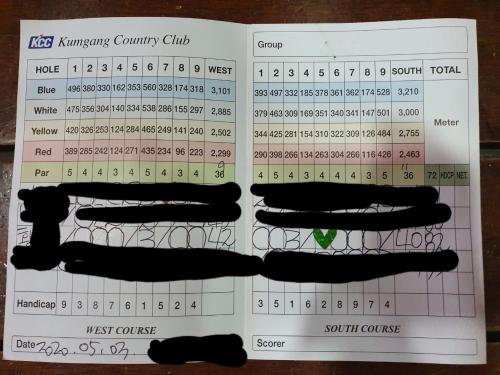 KCC Kumgang Country Club
HOLE 1 2 3 4 5 6 7 8 9 WEST
Blue 496 380 330 162 353 560 328 174 318 3,101
White 475 356 304 140 334 538 286 155 297 2,885
Yellow 420 326 253 124 284 465 249 141 240 2,502
Red 389 285 242 124 271 435 234 96 223 2,299
9
Par 5 4 4 3 4 5 4 3 4 36
42
Handicap 9 3 8 7 6 1 5 2 4
WEST COURSE
Date 2020.05.03
Group
1 2 3 4 5 6 7 8 9 SOUTH TOTAL
393 497 332 185 378 361 362 174 528 3,210
379 463 309 169 351 340 341 147 501 3,000
Meter
344 425 281 154 310 322 309 126 484 2,755
290 398 266 134 263 304 266 116 426 2,463
11
4 5 4 3 4 4 4 3 5 36 72 HDCP NET
40
3 5 1 6 2 8 9 7 4
SOUTH COURSE
Scorer